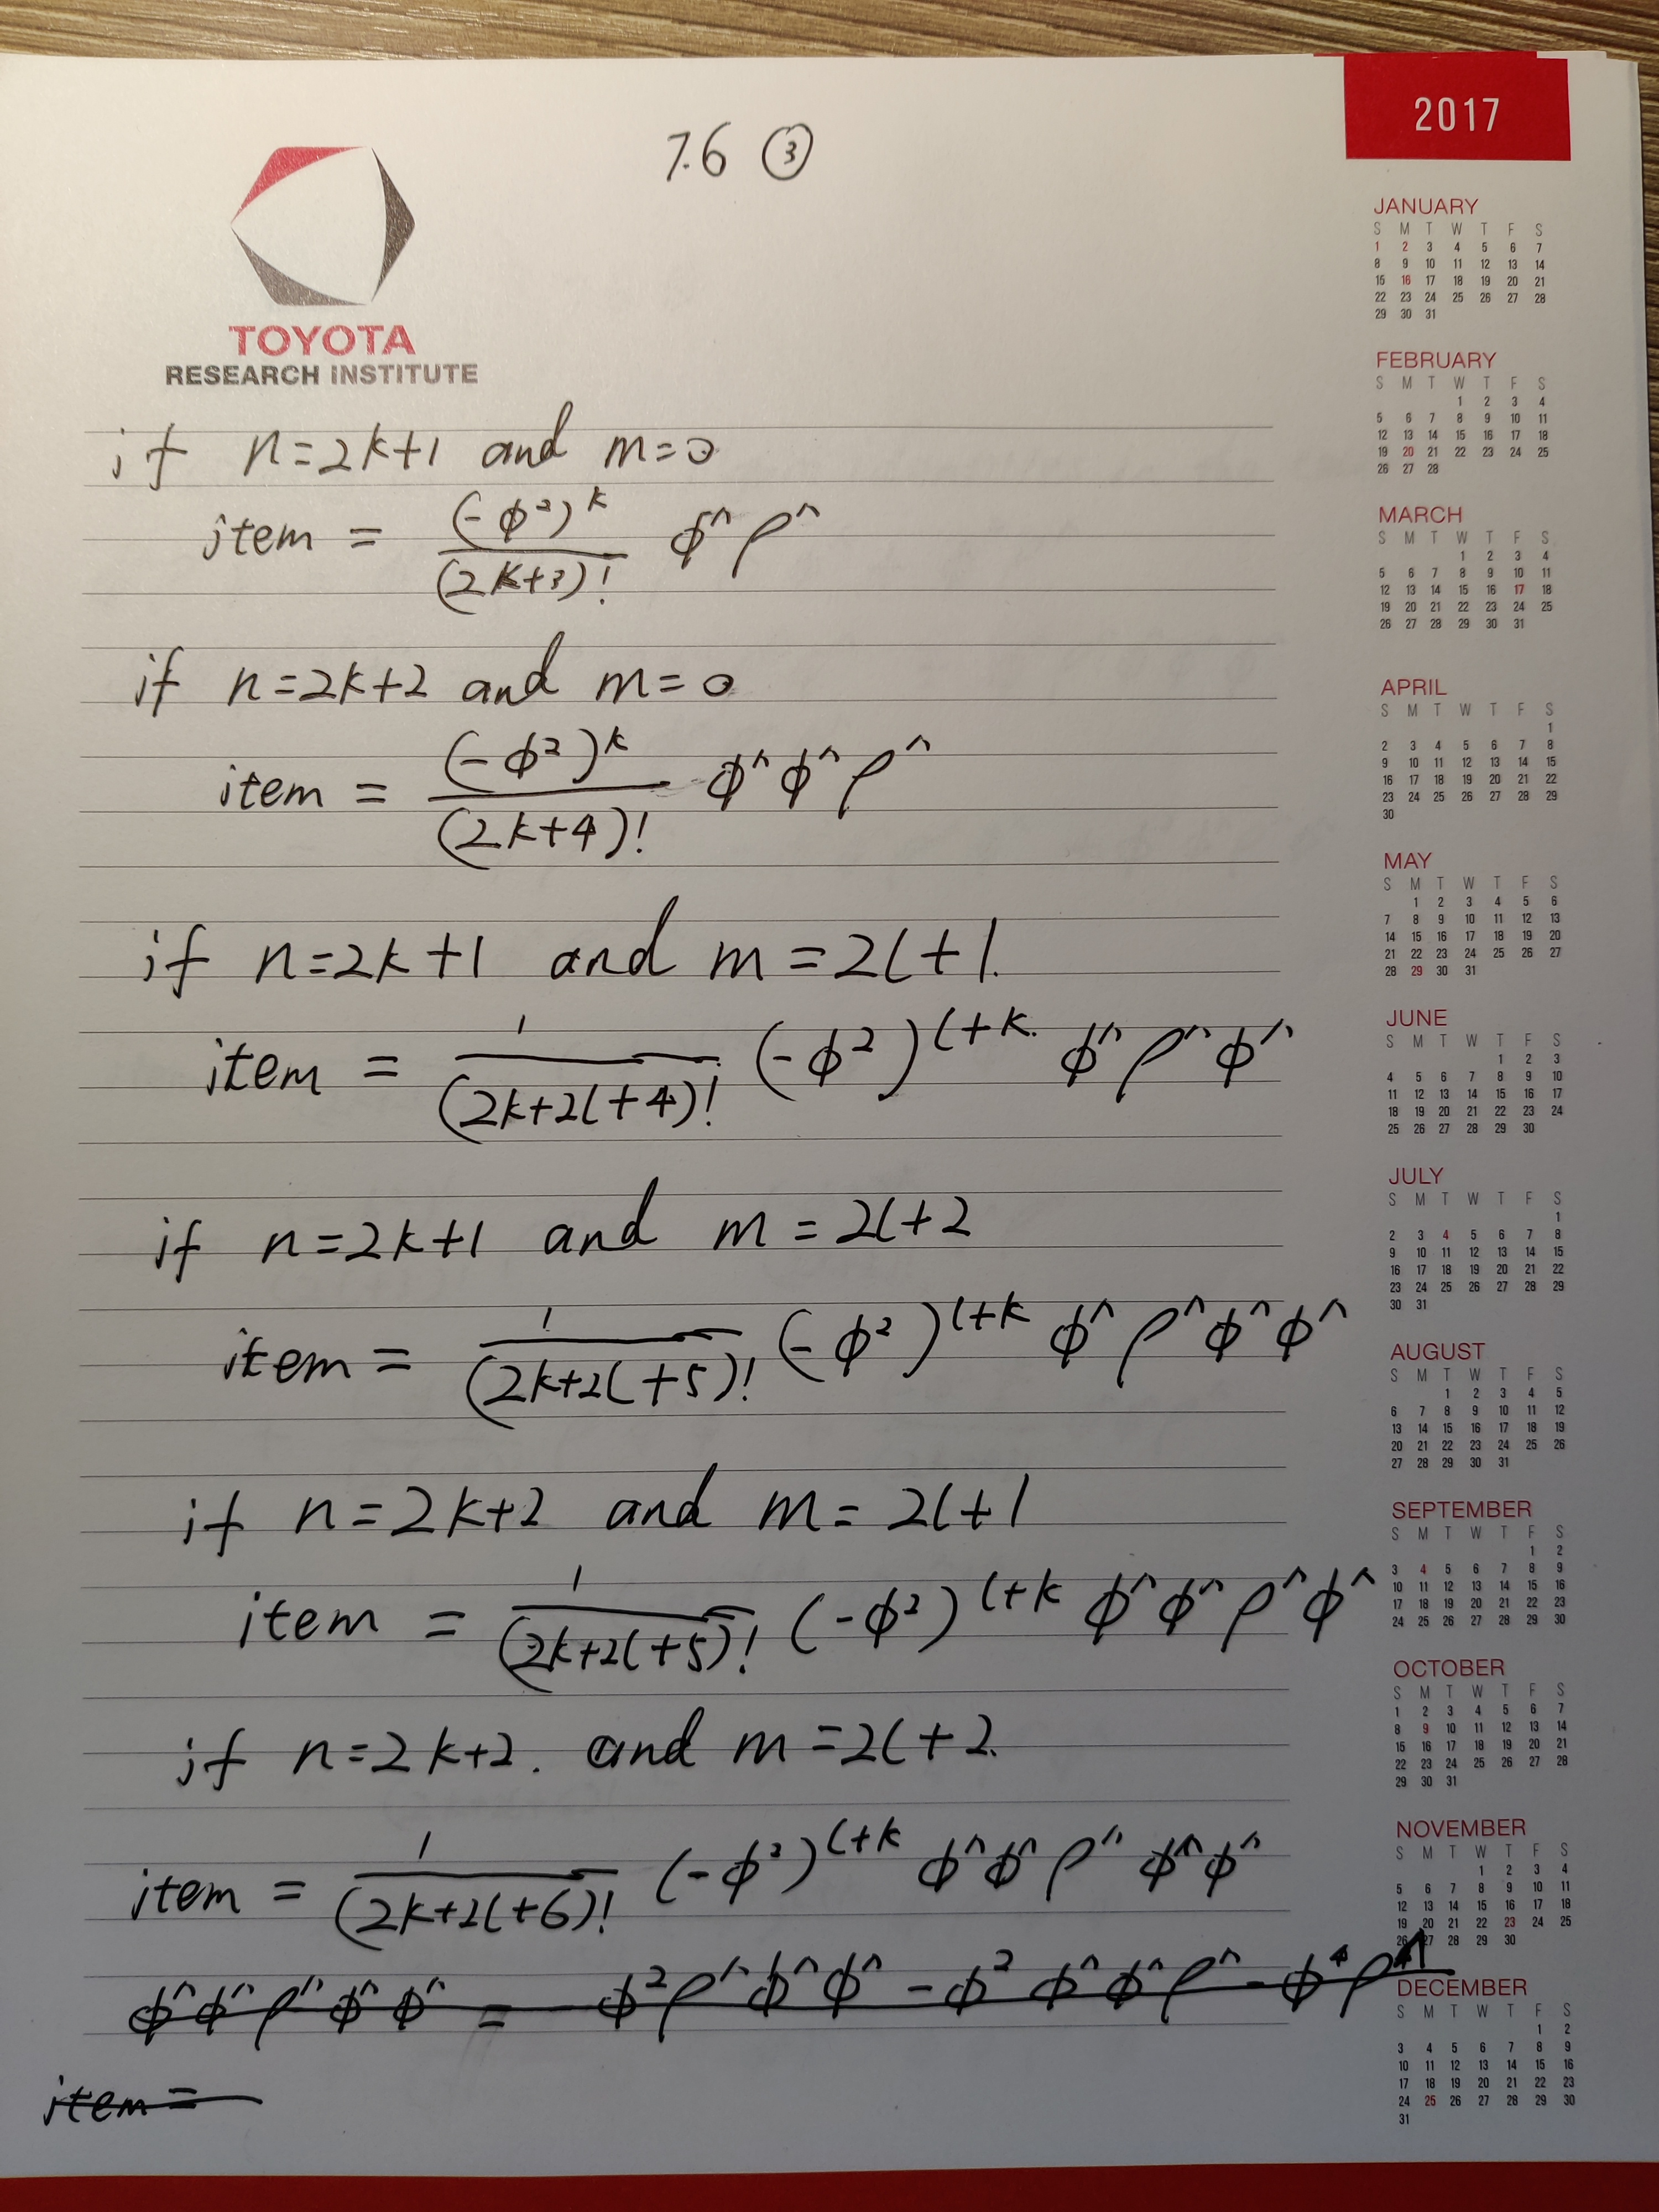 7.6 ③
2017
TOYOTA
RESEARCH INSTITUTE
if n=2k+1 and m=0
item = (-ϕ²)^k / (2k+3)! ϕ^ρ^
if n=2k+2 and m=0
item = (-ϕ²)^k / (2k+4)! ϕ^ϕ^ρ^
if n=2k+1 and m=2l+1.
item = 1 / (2k+2l+4)! (-ϕ²)^l+k. ϕ^ρ^ϕ^
if n=2k+1 and m=2l+2
item = 1 / (2k+2l+5)! (-ϕ²)^l+k ϕ^ρ^ϕ^ϕ^
if n=2k+2 and m=2l+1
item = 1 / (2k+2l+5)! (-ϕ²)^l+k ϕ^ϕ^ρ^ϕ^
if n=2k+2. and m=2l+2.
item = 1 / (2k+2l+6)! (-ϕ²)^l+k ϕ^ϕ^ρ^ϕ^ϕ^
ϕ^ϕ^ρ^ϕ^ϕ^ = -ϕ²ρ^ϕ^ϕ^ - ϕ²ϕ^ϕ^ρ^ - ϕ⁴ρ^
item =
JANUARY
S M T W T F S
1 2 3 4 5 6 7
8 9 10 11 12 13 14
15 16 17 18 19 20 21
22 23 24 25 26 27 28
29 30 31
FEBRUARY
S M T W T F S
1 2 3 4
5 6 7 8 9 10 11
12 13 14 15 16 17 18
19 20 21 22 23 24 25
26 27 28
MARCH
S M T W T F S
1 2 3 4
5 6 7 8 9 10 11
12 13 14 15 16 17 18
19 20 21 22 23 24 25
26 27 28 29 30 31
APRIL
S M T W T F S
1
2 3 4 5 6 7 8
9 10 11 12 13 14 15
16 17 18 19 20 21 22
23 24 25 26 27 28 29
30
MAY
S M T W T F S
1 2 3 4 5 6
7 8 9 10 11 12 13
14 15 16 17 18 19 20
21 22 23 24 25 26 27
28 29 30 31
JUNE
S M T W T F S
1 2 3
4 5 6 7 8 9 10
11 12 13 14 15 16 17
18 19 20 21 22 23 24
25 26 27 28 29 30
JULY
S M T W T F S
1
2 3 4 5 6 7 8
9 10 11 12 13 14 15
16 17 18 19 20 21 22
23 24 25 26 27 28 29
30 31
AUGUST
S M T W T F S
1 2 3 4 5
6 7 8 9 10 11 12
13 14 15 16 17 18 19
20 21 22 23 24 25 26
27 28 29 30 31
SEPTEMBER
S M T W T F S
1 2
3 4 5 6 7 8 9
10 11 12 13 14 15 16
17 18 19 20 21 22 23
24 25 26 27 28 29 30
OCTOBER
S M T W T F S
1 2 3 4 5 6 7
8 9 10 11 12 13 14
15 16 17 18 19 20 21
22 23 24 25 26 27 28
29 30 31
NOVEMBER
S M T W T F S
1 2 3 4
5 6 7 8 9 10 11
12 13 14 15 16 17 18
19 20 21 22 23 24 25
26 27 28 29 30
DECEMBER
S M T W T F S
1 2
3 4 5 6 7 8 9
10 11 12 13 14 15 16
17 18 19 20 21 22 23
24 25 26 27 28 29 30
31